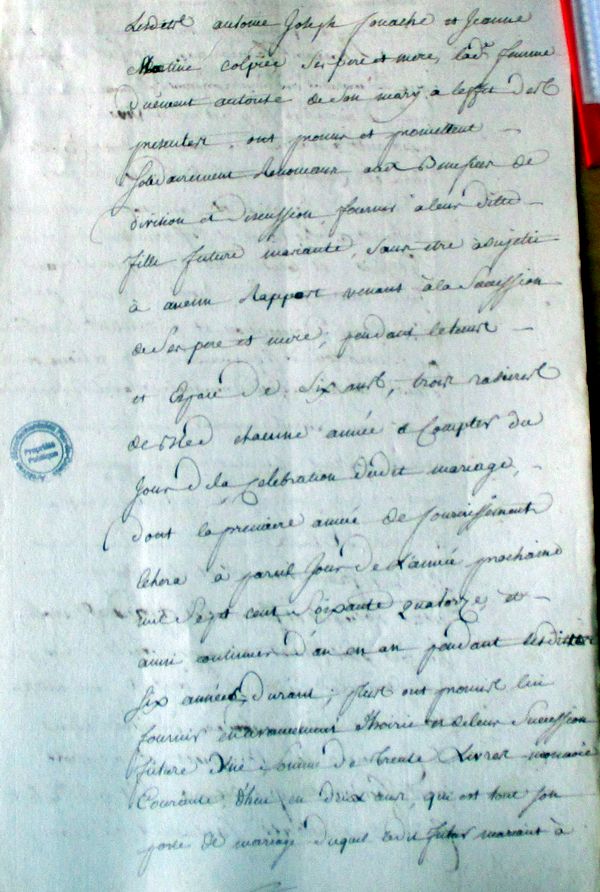 Lesdets antoine Joseph Couache et Jeanne
Martine Colpiée ses pere et mere, lade femme
duëment autorisé de son mary à leffet des
presentes, ont promis et promettent
solidairement Renoncant aux Benefices de
division et discussion fournir à leur ditte
fille future mariante, sans etre assujetie
à aucun Rapport venant à la Succession
de Ses pere et mere, pendant le tems
et Espace de Six ans, trois rasieres
de Bled chacune année à Compter du
Jour de la Celebration dudit mariage,
dont la premiere année de fournissement
Echera à pareil Jour de L'année prochaine
mil Sept cent Soixante quatorze, et
ainsi continuer d'an en an pendant lesdittes
Six années durant; plus ont promis lui
fournir en avancement d'hoirie et de leur Succession
future une Somme de trente Livres monnoie
Courante d'huÿ en deux ans, qui est tout son
port de mariage duquel ledit futur mariant à
Propriété
Publique